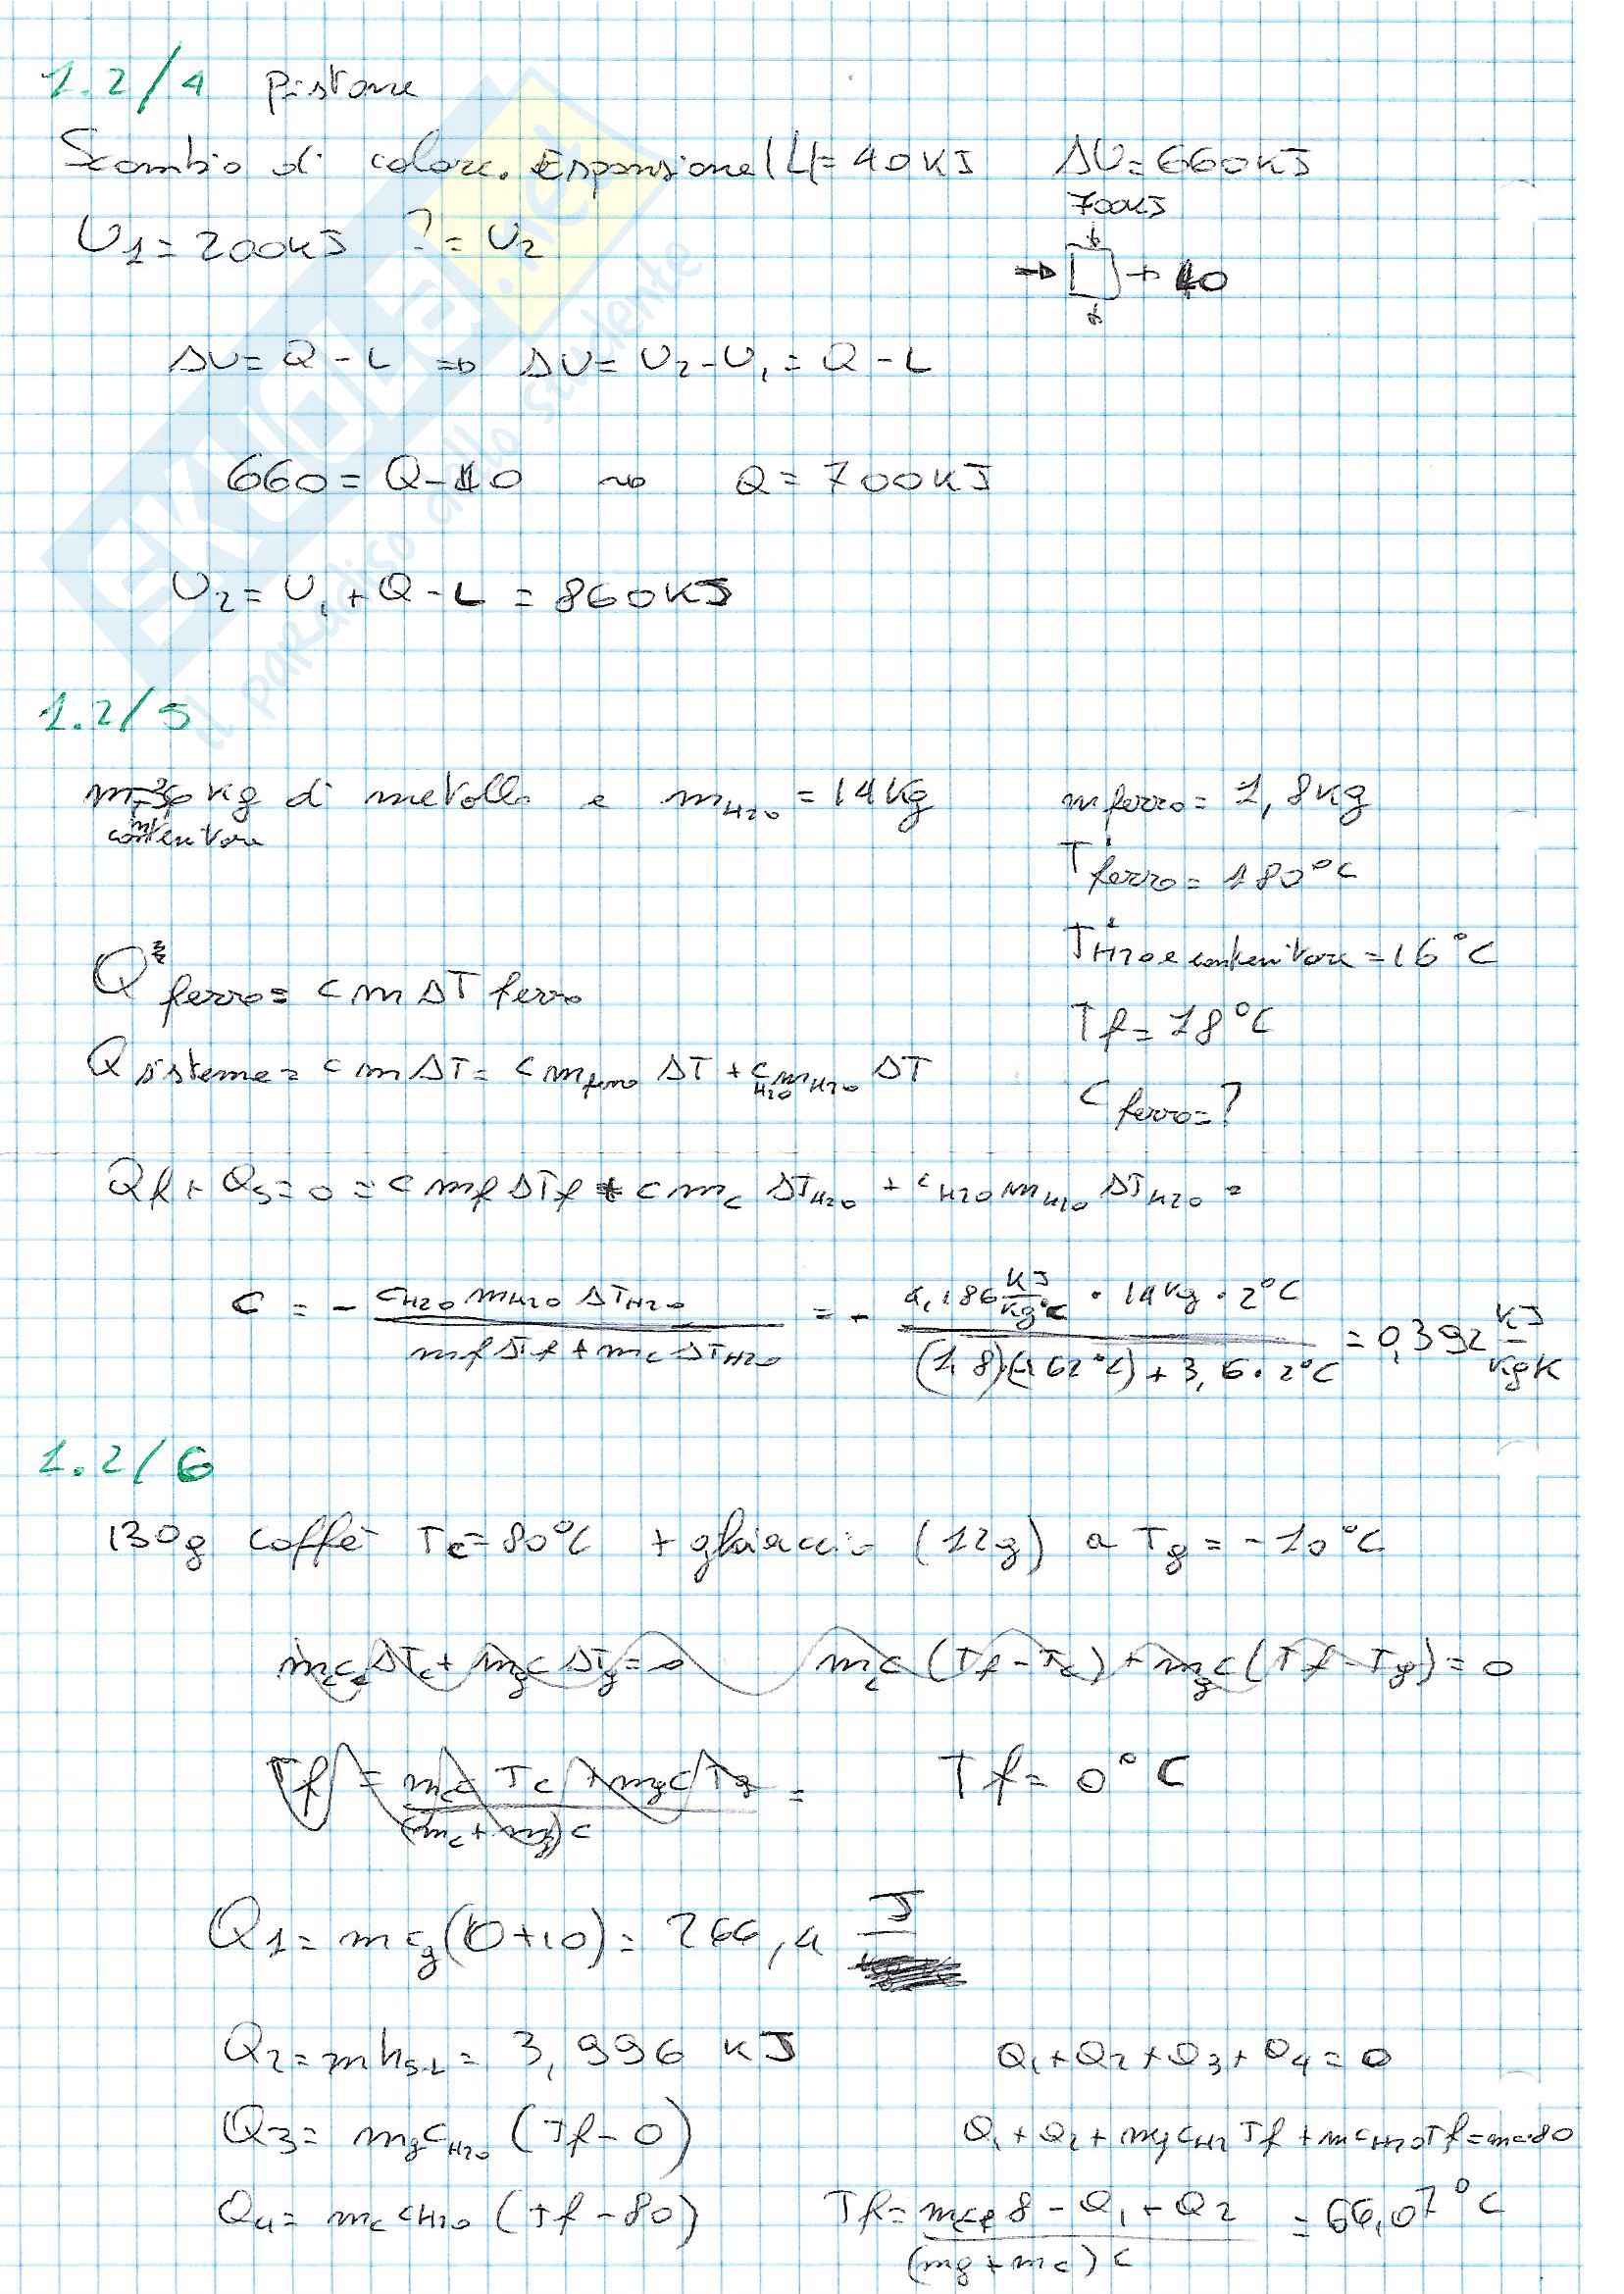 1.2/4 Pistone
Scambio di calore. Espansione |L|= 40KJ ΔU=660KJ
U1=200KJ ?=U2
700KJ
→ + 40
ΔU=Q-L => ΔU=U2-U1=Q-L
660=Q-40 ~> Q=700KJ
U2=U1+Q-L=860KJ
1.2/5
kg di metallo e mH2O=14Kg mferro=1,8Kg
contenitore
Tferro=180°C
TH2O e contenitore=16°C
Qferro=cmΔTferro
Tf=18°C
Qsistema=cmΔT=cmferroΔT+cH2OmH2OΔT
cferro=?
Qf+Qs=0=cmfΔTf+cmcΔTH2O+cH2OmH2OΔTH2O=
c=-cH2OmH2OΔTH2O/mfΔTf+mcΔTH2O=-4,186KJ/Kg°C·14Kg·2°C/(1,8)(-162°C)+3,6·2°C=0,392KJ/KgK
1.2/6
130g caffè Tc=80°C +ghiaccio (12g) a Tg=-10°C
mccΔTc+mgcΔTg=0 mc(Tf-Tc)+mgc(Tf-Tg)=0
Tf=mccTc+mgcTg/(mc+mg)c= Tf=0°C
Q1=mcg(0+10)=266,4 J
Q2=mhS-L=3,996 KJ Q1+Q2+Q3+Q4=0
Q3=mgcH2O(Tf-0) Q1+Q2+mgcH2Tf+mcH2OTf=mc80
Q4=mccH2O(Tf-80) Tf=mcc8-Q1+Q2/(mg+mc)c=66,07°C
EKUCLA.net
il paradiso dello studente